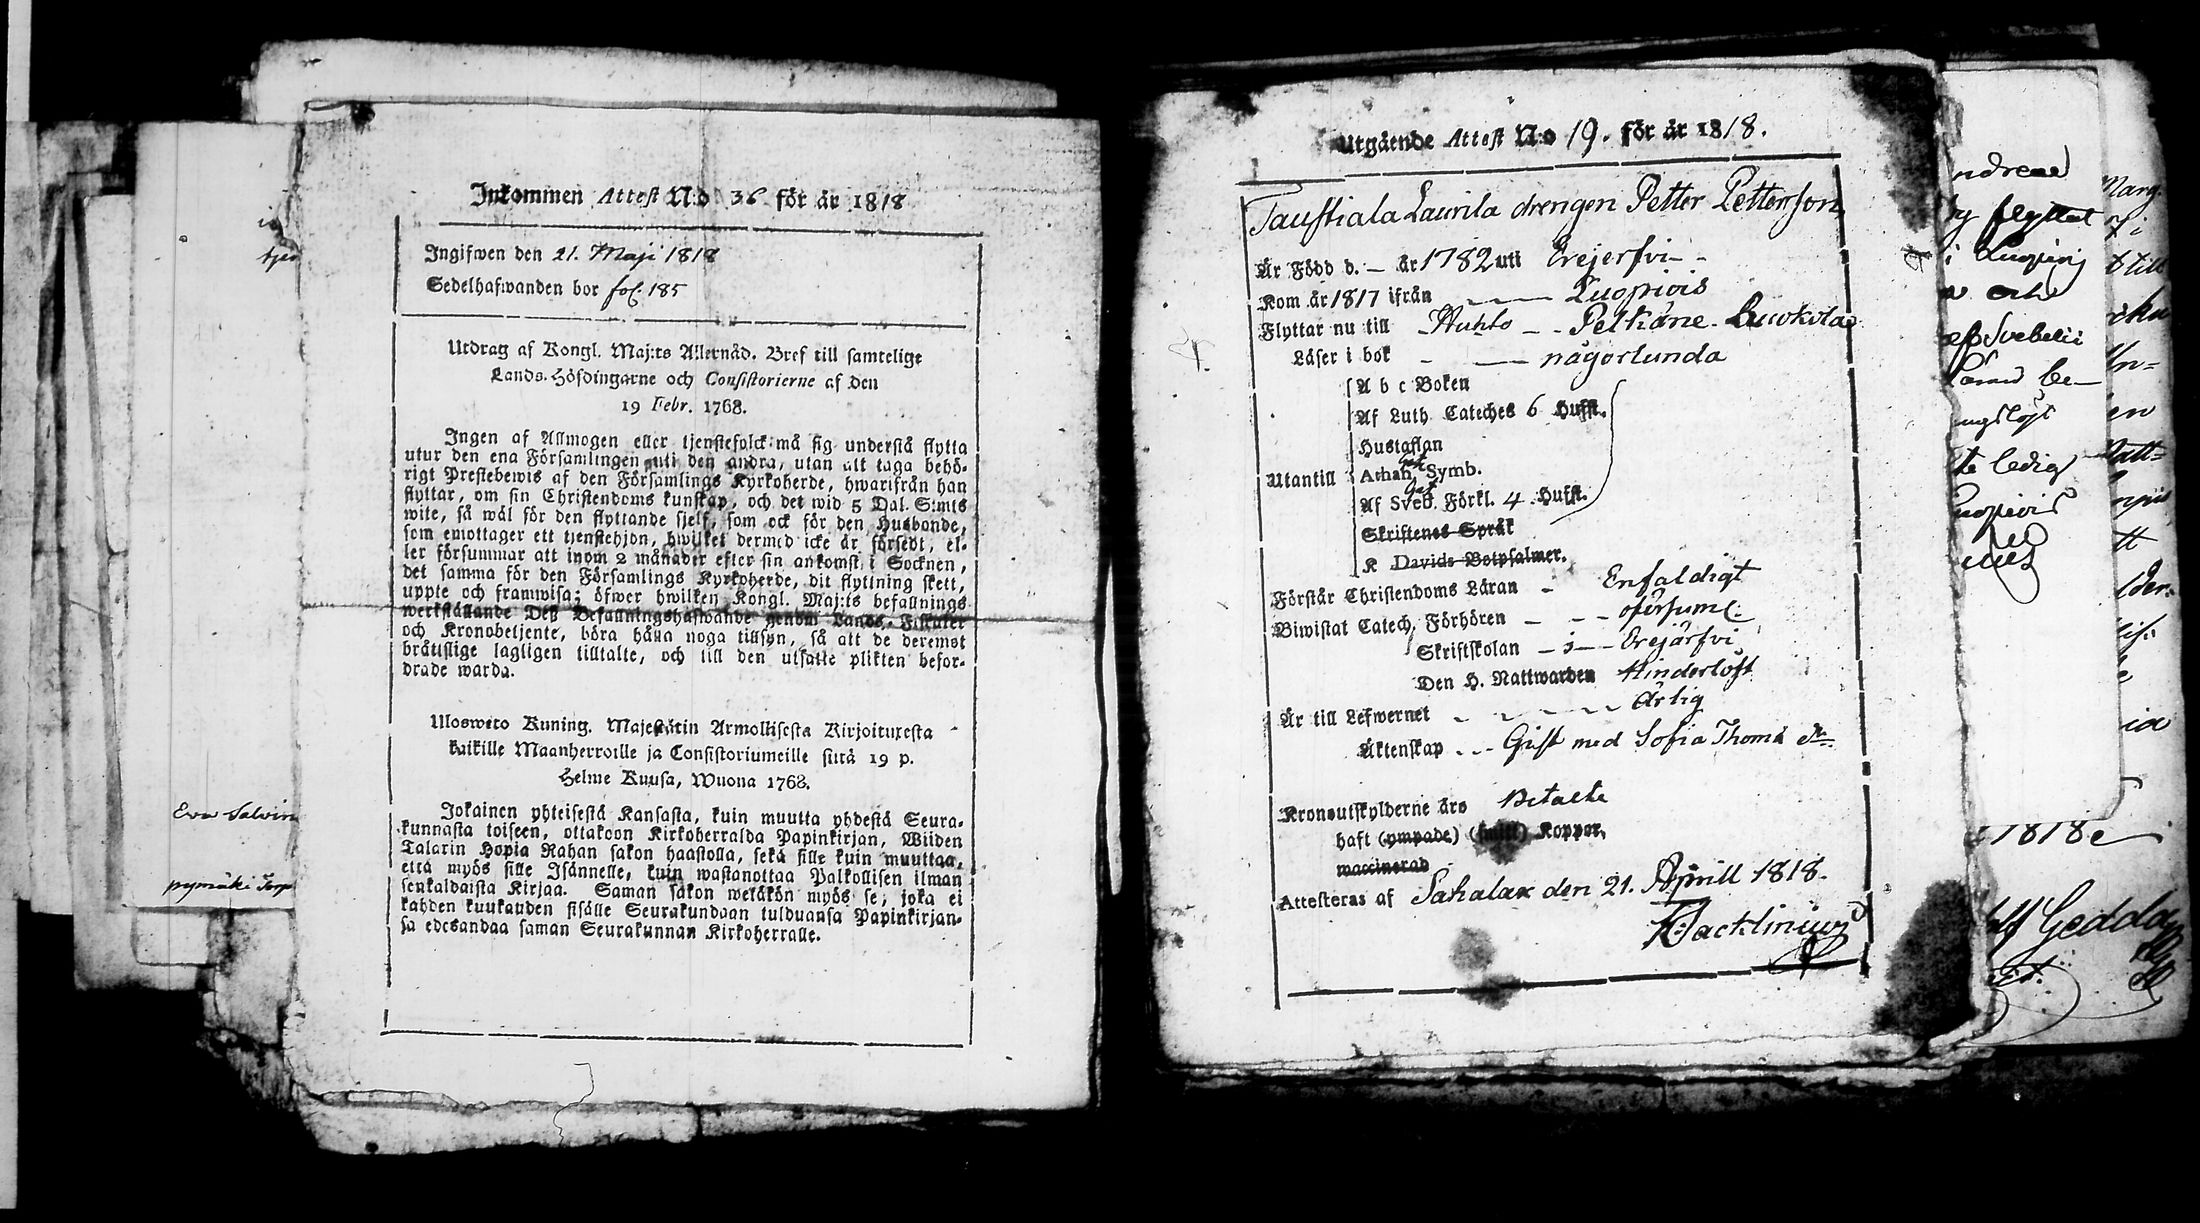 Inkommen Attest N:o 36 för år 1818
Ingifwen den 21. Maji 1818
Sedelhafwanden bor fol. 185
Utdrag af Kongl. Maj:ts Allernåd. Bref till samtelige
Lands-Höfdingarne och Consistorierne af den
19 Febr. 1768.
Ingen af Allmogen eller tjenstefolck må sig understå flytta
utur den ena Församlingen uti den andra, utan att taga behö-
rigt Prestebewis af den Församlings Kyrkoherde, hwarifrån han
flyttar, om sin Christendoms kunskap, och det wid 5 Dal. S:mts
wite, så wäl för den flyttande sjelf, som ock för den Husbonde,
som emottager ett tjenstehjon, hwilket dermed icke är försedt, el-
ler försummar att inom 2 månader efter sin ankomst i Socknen,
det samma för den Församlings Kyrkoherde, dit flyttning skett,
uppte och framwisa; öfwer hwilken Kongl. Maj:ts befallnings
werkställande Deß Befallningshafwande genom Lands-Fiskaler
och Kronobetjente, böra hålla noga tillsyn, så att de deremot
bråtislige lagligen tilltalte, och till den utsatte plikten befor-
drade warda.
Ulosweto Kuning. Majestätin Armollisesta Kirjoituxesta
kaikille Maanherroille ja Consistoriumeille siitä 19 p.
Helme Kuusa, Wuona 1768.
Jokainen yhteisestä Kansasta, kuin muutta yhdestä Seura-
kunnasta toiseen, ottakoon Kirkoherralda Papinkirjan, Wiiden
Talarin Hopia Rahan sakon haastolla, sekä sille kuin muuttaa,
että myös sille Isännelle, kuin wastanottaa Palkollisen ilman
senkaldaista Kirjaa. Saman sakon weläkön myös se, joka ei
kahden kuukauden sisälle Seurakundaan tulduansa Papinkirjan-
sa edesandaa saman Seurakunnan Kirkoherralle.
Utgående Attest N:o 19. för år 1818.
Taustiala Laurila drengen Petter Pettersson,
Är Född d. — år 1782 uti Erejerfvi -
Kom år 1817 ifrån — Luopiois
Flyttar nu till Huhto - - Pelkäne. Luukola
Läser i bok - — någorlunda
A b c Boken
Af Luth Cateches 6 Hufst.
Hustaflan
Utantill Athan. Symb.
Af Sveb. Förkl. 4 Hufst.
Skriftenes Språk
K Davids Botpsalmer.
Förstår Christendoms Läran - Enfaldigt
Biwistat Catech. Förhören — - - oförsuml.
Skriftskolan - i - Erejärfvi
Den H. Nattwarden Hinderlöst
Är till Lefwernet - - - - Ärlig
Äktenskap - - - Gift med Sofia Thoma dr.
Kronoutskylderne äro Betalte
haft (ympade) Koppor,
waccinerad
Attesteras af Sahalax den 21. Aprill 1818.
ndreae
flyttat
i Luopiois
Svebelii
ledig
Luopiois
1818
Gedda
Eva Salvin